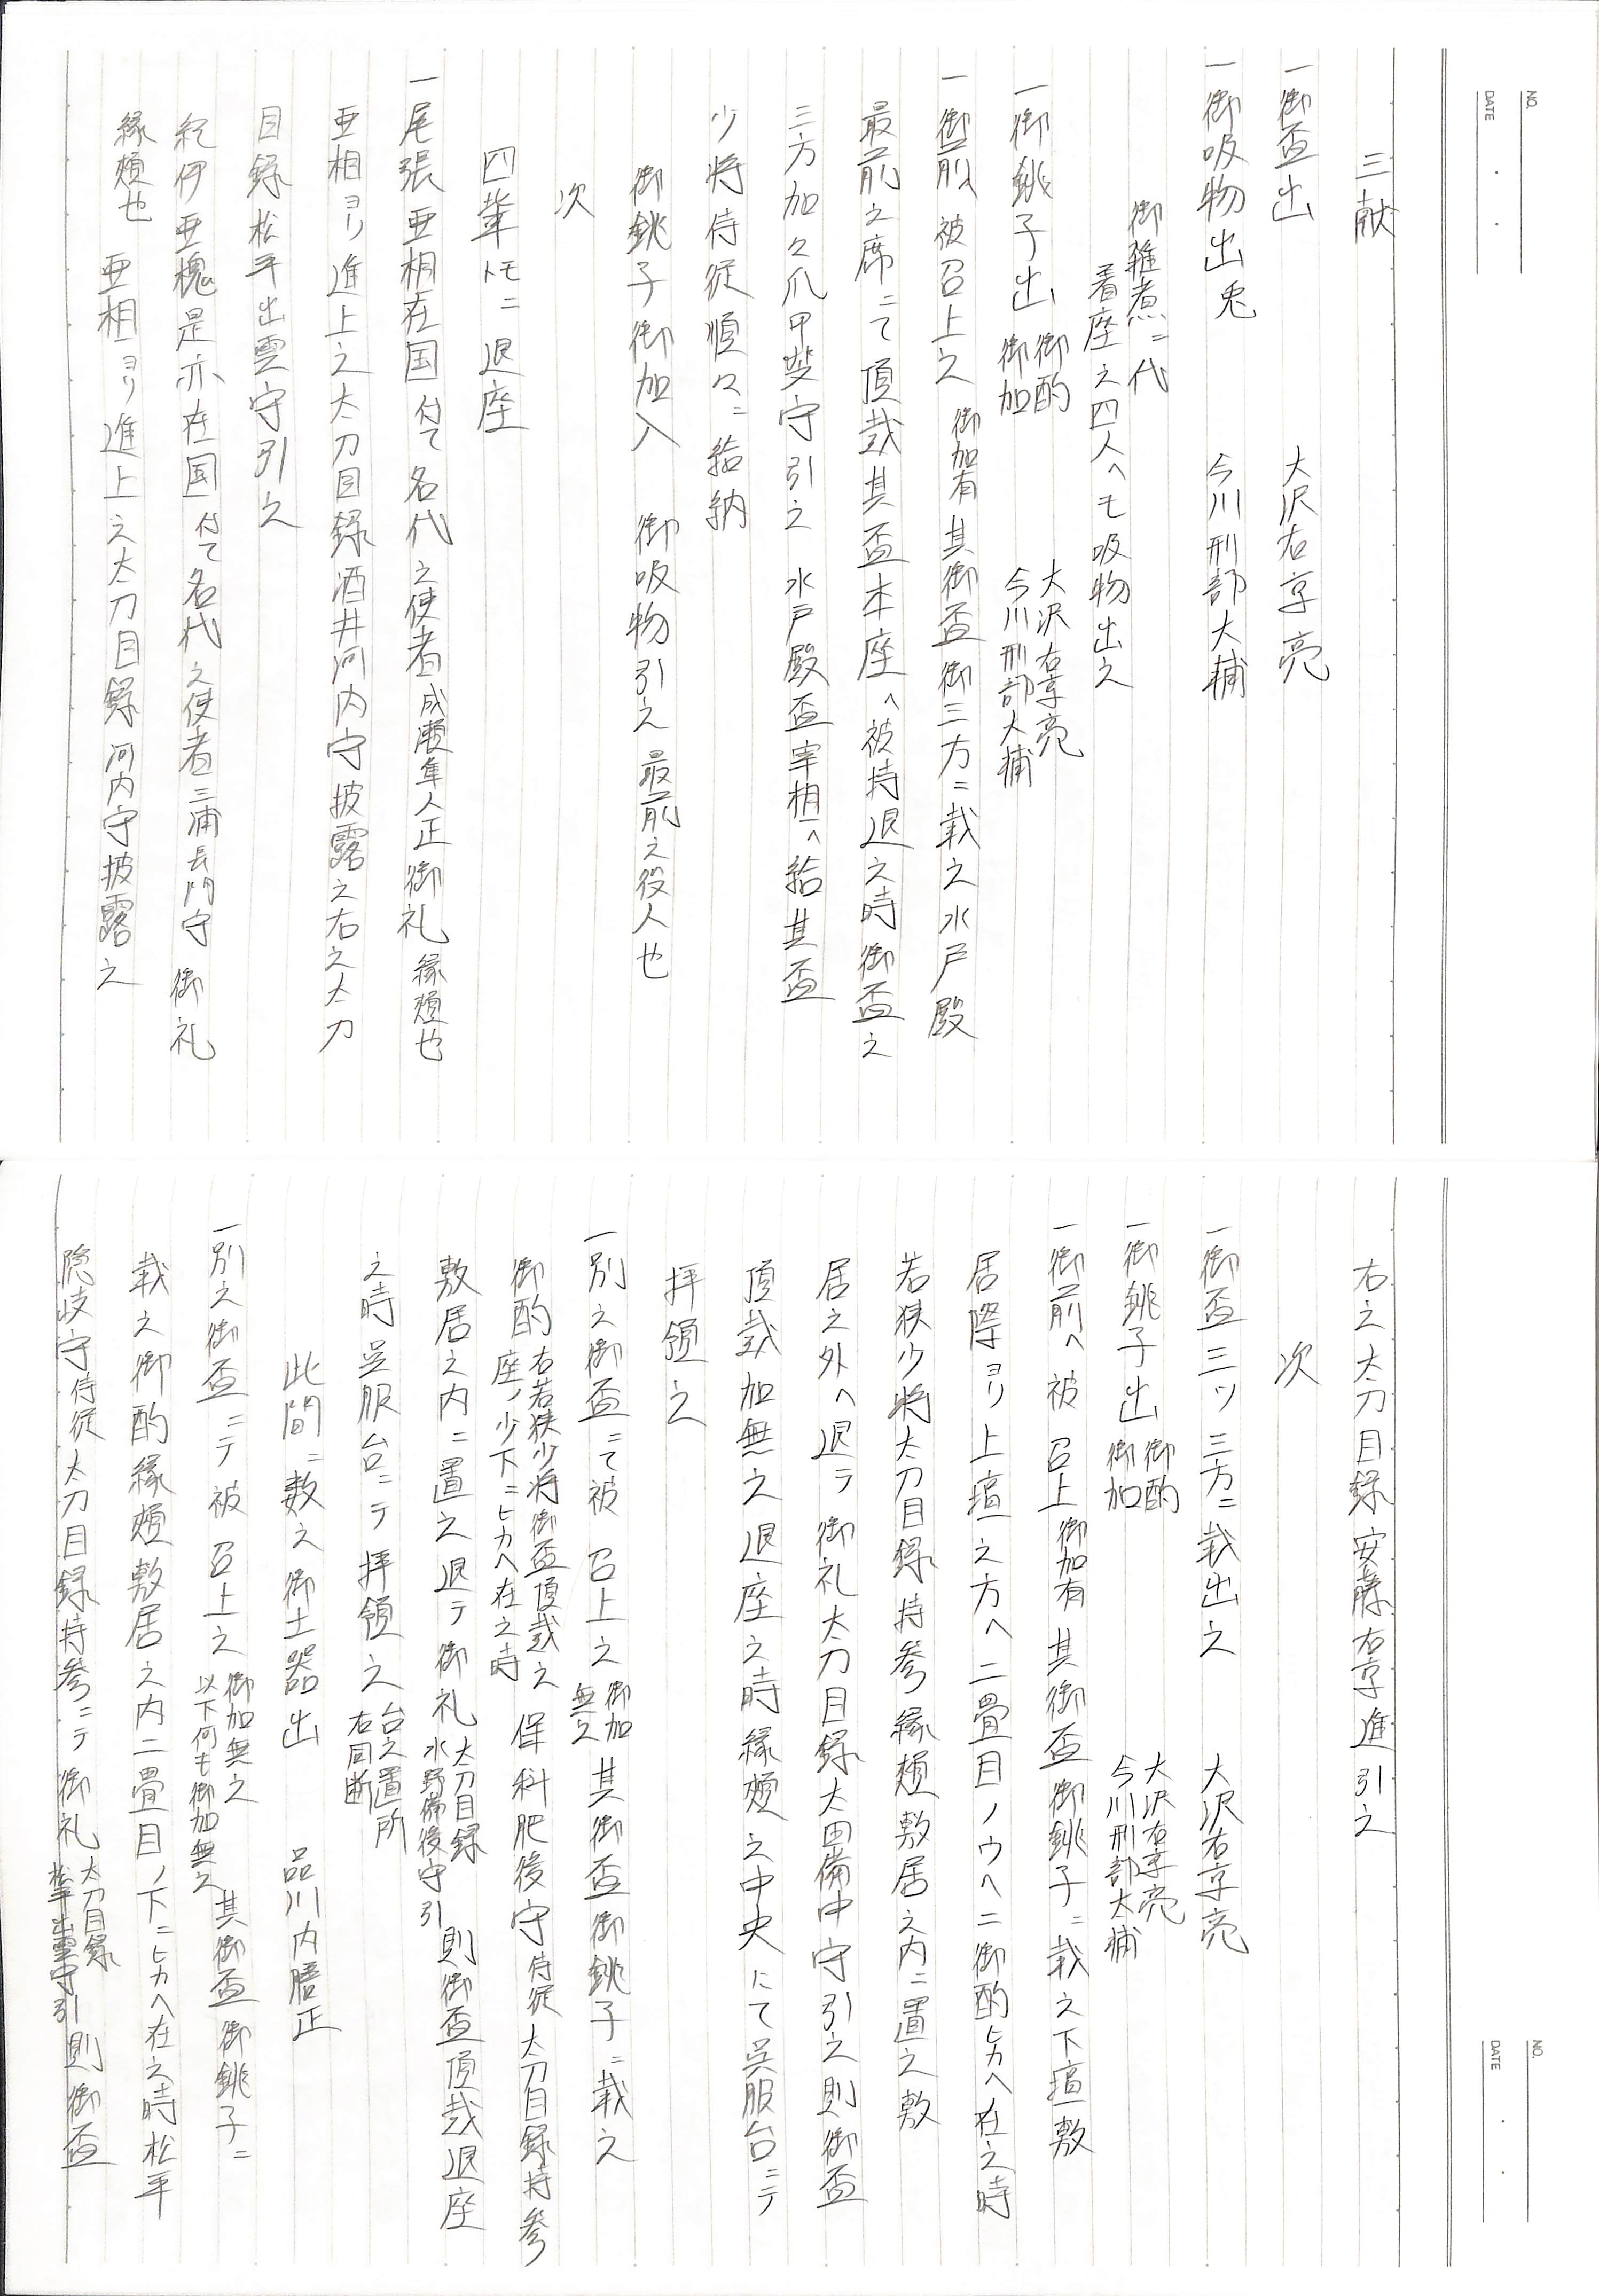 NO.
DATE
三献
一御盃出　大沢右京亮
一御吸物出兎　今川刑部大輔
御雑煮ニ代
着座之四人ヘモ吸物出之
一御銚子出　御酌　大沢右京亮
御加　今川刑部大輔
一御前ヘ被召上之　御加有　其御盃御三方ニ載之水戸殿
最前之席ニて頂戴其盃本座ヘ被持退之時御盃之
三方加々爪甲斐守引之　水戸殿盃宰相ヘ給其盃
少将侍従順々ニ給納
御銚子御加入　御吸物引之　最前之役人也
次
四輩トモニ退座
一尾張亜相在国付て名代之使者成瀬隼人正御礼縁頬也
亜相ヨリ進上之太刀目録酒井河内守披露之右之太刀
目録松平出雲守引之
紀伊亜槐是亦在国付て名代之使者三浦長門守御礼
縁頬也　亜相ヨリ進上之太刀目録河内守披露之
NO.
DATE
右之太刀目録安藤右京進引之
次
一御盃三ツ三方ニ載出之　大沢右京亮
一御銚子出　御酌　大沢右京亮
御加　今川刑部大輔
一御前ヘ被召上御加有其御盃御銚子ニ載之下壇敷
居際ヨリ上壇之方ヘ二畳目ノウヘニ御酌ヒカヘ在之時
若狭少将太刀目録持参縁頬敷居之内ニ置之敷
居之外ヘ退テ御礼太刀目録太田備中守引之則御盃
頂戴加無之退座之時縁頬之中央にて呉服台ニテ
拝領之
一別之御盃ニて被召上之　御加無之　其御盃御銚子ニ載之
御酌　右若狭少将御盃頂戴之座ノ少下ニヒカヘ在之時　保科肥後守侍従太刀目録持参
敷居之内ニ置之退テ御礼　太刀目録水野備後守引　則御盃頂戴退座
之時呉服台ニテ拝領之　台之置所右同断
此間ニ数之御土器出　品川内膳正
一別之御盃ニテ被召上之　御加無之以下何も御加無之　其御盃御銚子ニ
載之御酌縁頬敷居之内二畳目ノ下ニヒカヘ在之時松平
隠岐守侍従太刀目録持参ニテ御礼　太刀目録松平出雲守引　則御盃